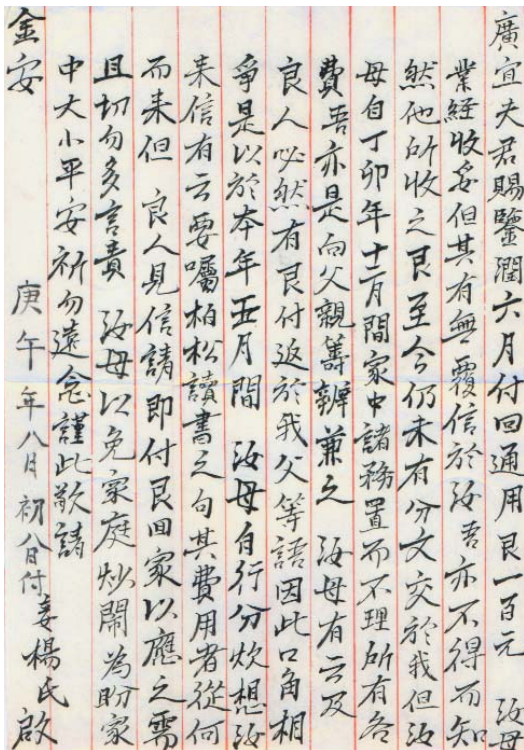 廣宜夫君賜鑒潤六月付回通用艮一百元 汝母
業經收妥但其有無覆信於汝吾亦不得而知
然他所收之艮至今仍未有分文交於我但汝
母自丁卯年十二月間家中諸務置而不理所有各
費吾亦是向父親籌辦兼之 汝母有云及
良人必然有艮付返於我父等語因此口角相
爭是以於本年五月間 汝母自行分炊想汝
來信有云要囑柏松讀書之句其費用者從何
而來但 良人見信請即付艮回家以應之需
且切勿多言責 汝母以免家庭炒鬧為盼家
中大小平安祈勿遠念謹此敬請
金安
庚午年八月初八日付 妾楊氏啟